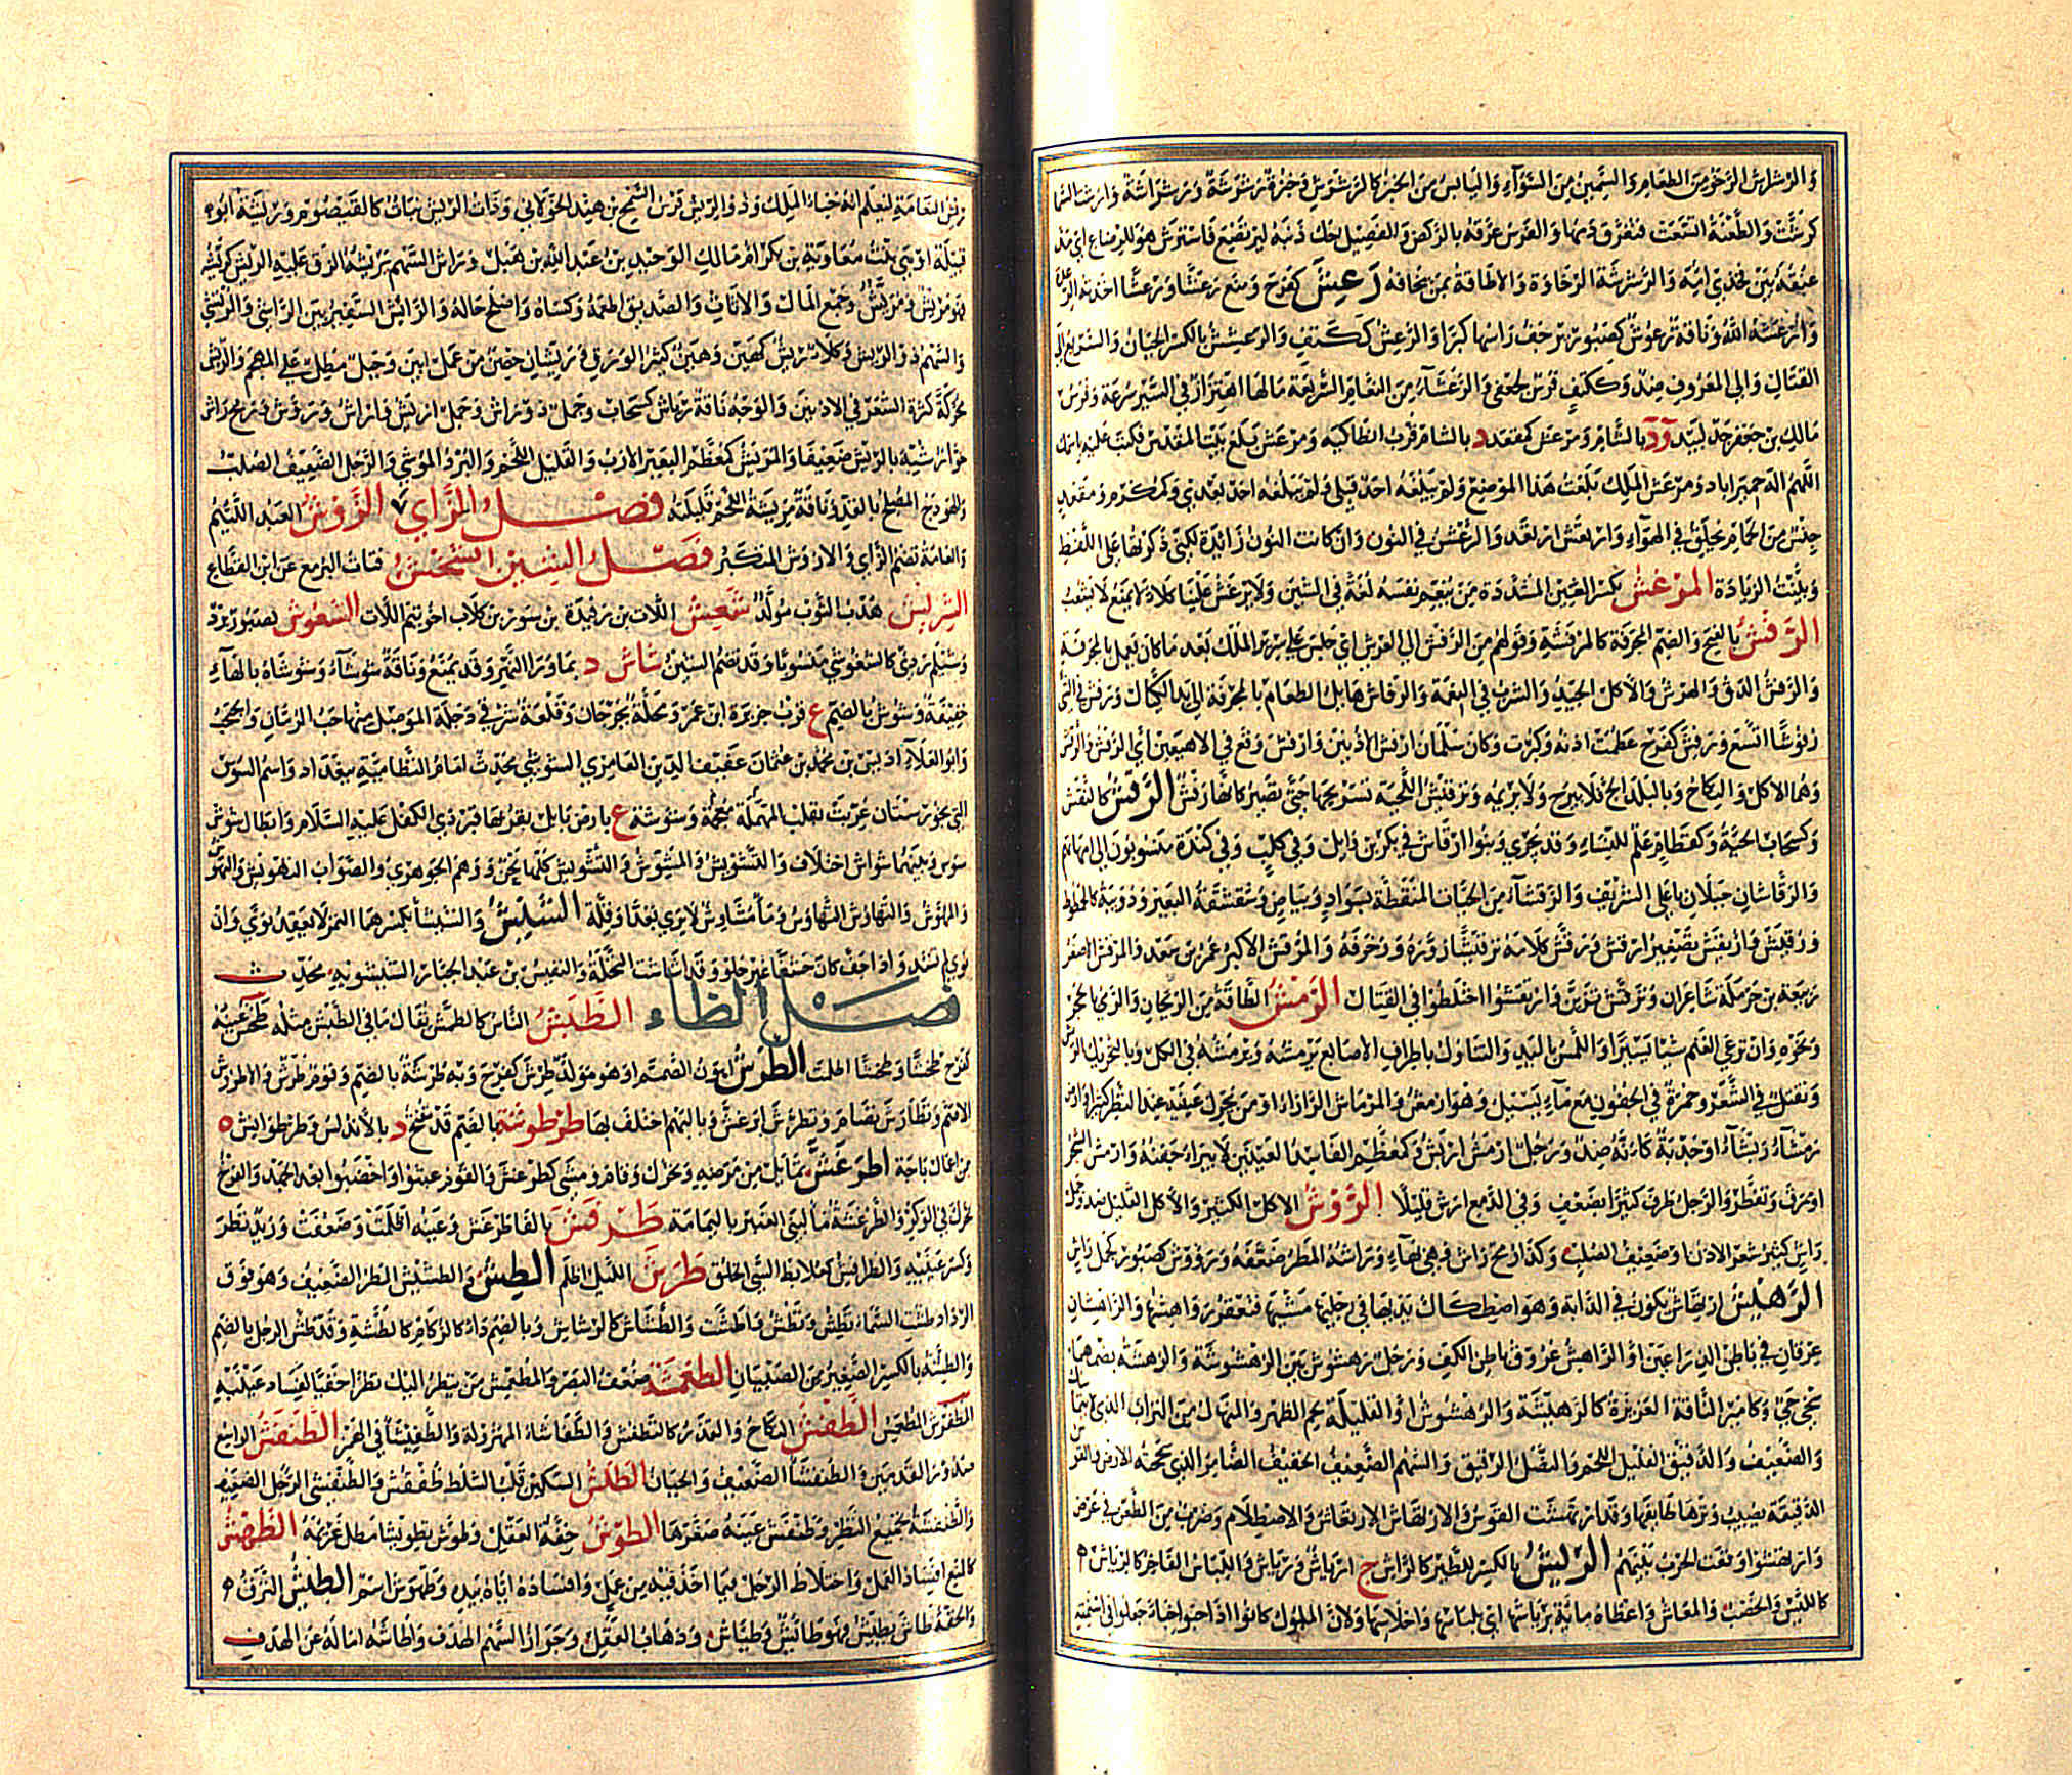 والرشراش الرخو من الطعام والسمين من الشواء واليابس من الخبز كالرشوش وخبزة رشرشة ورشراشة وارشت السما
كرشت والطعنة اتسعت فتفرق دمها والفرس عرقه بالركض والفصيل حك ذنبه ليرتضع فاسترش هو للرضاع اي مد
عنقه بين فخذي امه والرشرشة الرخاوة والاطافة بمن تخافه رعش كفرح ومنع رعشا ورعشا اخذته الرعدة
وارعشه الله وناقة رعوش كصبور يرجف راسها كبرا والرعش ككتف والرعشيش بالكسر الجبان والسريع الى
القتال والى المعروف ضد وككتف فرس لجعفي والرعشاء من النعام السريعة مالها اهتزاز في السير سرعة وفرس
مالك بن جعفر جد لبيد ود بالشام ومرعش كمقعد د بالشام قرب انطاكية ومرعش بلغ بيت المقدس فكتب عليه باسمك
اللهم اله حمير اناذو مرعش الملك بلغت هذا الموضع ولم يبلغه احد قبلي ولم يبلغه احد بعدي وكمكرم ومقعد
جنس من الحمام يحلق في الهواء وارتعش ارتعد والرعشن في النون وان كانت النون زائدة لكني ذكرتها على اللفظ
وبينت الزيادة المرغش بكسر الغين المشددة من ينعم نفسه لغة في السين ولا ترغش علينا كلا تمنع لا تشغب
الرفش بالفتح والضم المجرفة كالمرفشة وقولهم من الرفش الى العرش اي جلس على سرير الملك بعد ما كان يعمل بالمجرفة
والرفش الدق والهرش والاكل الجيد والشرب في النعمة والرفاش هايل الطعام بالمجرفة الى يد الكيال ورفش في الشيء
رفوشا اتسع ورفش كفرح عظمت اذنه وكبرت وكان سلمان ارفش الاذنين وارفش وقع في الاهيغين اي الرفش والقفش
وهما الاكل والنكاح وبالبلد الح فلا يبرح ولا يريمه وترفيش اللحية تسريحها حتى تصير كانها رفش الرقش كالنقش
وكسحاب الحية وكقطام علم للنساء وقد يجري وبنوا رقاش في بكر بن وايل وفي كلب وفي كندة منسوبون الى امهاتهم
والرقاشان جبلان باعلى الشريف والرقشاء من الحيات المنقطة بسواد وبياض وشقشقة البعير ودويبة كالخطوط
ورقيش وارتقش تصغير ارقش ورقش كلامه ترقيشا زوره وزخرفه والمرقش الاكبر عمرو بن سعد والمرقش الاصغر
ربيعة بن حرملة شاعران وترقش تزين وارتقشوا اختلطوا في القتال الرمش الطاقة من الريحان والرمي بالحجر
ونحوه وان ترعى الغنم شيئا يسيرا واللمس باليد والتناول باطراف الاصابع يرمشه ويرمشه في الكل وبالتحريك الربش
وتفتل في الشعر وحمرة في الجفون مع ماء يسيل وهو ارمش والمرماش الراراء او من يحرك عينيه عند النظر كثيرا وارض
رمشاء ربشاء او جدبة كانه ضد ورجل ارمش اربش وكمعظم الفاسد العينين لا يبرأ جفنه وارمش الشجر
اورق وتفطر والرجل طرف كثيرا بضعف وفي الدمع ارش قليلا الروش الاكل الكثير والاكل القليل ضد وجمل
راش كثير شعر الاذن او ضعيف الصلب وكذا رمح راش وهي بهاء وراشه المرض ضعفه ورؤوش كصبور كجمل راش
الرهيش ارتهاش يكون في الدابة وهو اصطكاك يديها في رجليها مشيها فتعقر رواهشها والراهشان
عرقان في باطن الذراعين او الرواهش عروق باطن الكف ورجل رهشوش بين الرهشوشة والرهشة بضمهما
سخي حيي وكامير الناقة الغزيرة كالرهيشة والرهشوش او القليلة لحم الظهر والمنهال من التراب الذي لا يتماسك
والضعيف والدقيق القليل اللحم والنصل الرقيق والسهم الضعيف الخفيف الضامر الذي سحجته الارض والقوس
الدقيقة يصيب وترها طايفها وقد ارتهشت القوس والارتهاش الارتعاش والاصطلام وضرب من الطعن في عرض
وارتهشوا وقعت الحرب بينهم الريش بالكسر للطير كالراش ج ارياش ورياش واللباس الفاخر كالرياش
كاللبس واللباس والخصب والمعاش واعطاه مائة برياشها اي بلباسها واحلاسها ولان الملوك كانوا اذا حبوا حباء جعلوا في اسنمته
ريش النعامة ليعلم انه حباء الملك وذو الريش فرس السمح بن هند الخولاني وذات الريش نبات كالقيصوم وريشة ابو
قبيلة او بنت معاوية بن بكر ام مالك الوحيد بن عبد الله بن هبل وراش السهم يريشه الزق عليه الريش كريشه
فهو مريش ومريش وجمع المال والاثاث والصديق اطعمه وكساه واصلح حاله والرائش السفير بين الراشي والمرتشي
والسهم ذو الريش وكلا ريش كهين وهين كثير الورق وريشان حصن من عمل ابين وجبل مطل على المهجم والريش
محركة كثرة الشعر في الاذنين والوجه ناقة رياش كسحاب وجمل ذو راش وجمل اريش وراش ورؤش ورمح راش
خوار شبه بالريش ضعيفا والمريش كمعظم البعير الازب والقليل اللحم والبرد الموشى والرجل الضعيف الصلب
والهودج المصلح بالقد وناقة مريشة اللحم قليلته فصل الزاي الزوش العبد اللئيم
والعامة تضم الزاي والازوش المتكبر فصل السين السخش فتات البرمع عن ابن القطاع
السريش هدب الثوب مولد سعيش اللات بن رفيدة بن ثور بن كلاب اخو تيم اللات السغوش بصبور برد
وسيلم ردي كالسغوشي منسوبا وقد تضم السين شاش د بما وراء النهر وقد يمنع وناقة شوشاء وشوشاة بالهاء
خفيفة وشوش بالضم ع قرب جزيرة ابن عمر ومحلة بجرجان وقلعة شرقي دجلة الموصل منها حب الرمان والحجب
وابو العلاء ادريس بن محمد بن عثمان عفيف الدين العامري الشوشي محدث امام النظامية ببغداد واسم السوس
التي بخوزستان عربت بقلب المهملة معجمة وشوشة ع بارض بابل بقربها قبر ذي الكفل عليه السلام وابطال شوش
شوس وبينهما شواش اختلاف والتشويش والمشوش والتشوش كلها لحن ووهم الجوهري والصواب التهويش والمهوش
والمهوش والتهاوش التهاوش وماء مشاوش لا يرى بعدا وقلة الشيش والشيشاء بكسرهما التمر لا يعقد نوى وان
نوى لم يشتد واذا جف كان حشفا غير حلو وقد اشاشت النخلة والنفيس بن عبد الجبار الشيشويه محدث
فصل الطاء الطبش الناس كالطمش يقال ما في الطبش مثله طخش عينه
كفرح طخشا وطخشا اظلمت الطرش اهون الصمم او هو مولد طرش كفرح وبه طرشة بالضم وقوم طرش والاطروش
الاصم وتطارش تصام وتطرش ابرغش وبالبهم اختلف بها طرطوشة بالضم قد تفتح د بالاندلس وطرطوايش
من اعمال باجة اطرغش تماثل من مرضه وتحرك وقام ومشى كطرغش والقوم غيثوا واخصبوا بعد الجهد والفرخ
تحرك في الوكر والطرغشة ماء لبني العنبر باليمامة طرفش بالفا طرغش وعينه اظلمت وضعفت وزيد نظر
وكسر عينيه والطرافش كعلابط السيئ الخلق طرش الليل اظلم الطش والطشيش المطر الضعيف وهو فوق
الرذاذ طشت السماء تطش وتطش واطشت والطشاش كالرشاش وبالضم داء كالزكام كالطشة وقد طش الرجل بالضم
والطشة بالكسر الصغير من الصبيان الطغمشة ضعف البصر والمطغمش من ينظر اليك نظرا خفيا لفساد عينيه
الطفش النكاح والقذر كالتطفيش والطفاشاة المهزولة والطفيشاء في الهمز الطنفش الواسع
صدور القدمين والطفنشأ الضعيف والجبان الطلش السكين قلب الشلط طفنش والطنفشي الرجل الضعيف
والطنفشة تحميج النظر وطنفش عينه صغرها الطوش خفة العقل وطوش تطويشا مطل غريمه الطهش
كالمنع افساد العمل واختلاط الرجل فيما اخذ فيه من عمل وافساده اياه بيده وطهوش اسم الطيش النزق
والخفة طاش يطيش فهو طائش وطياش وذهاب العقل وجواز السهم الهدف واطاشه اماله عن الهدف